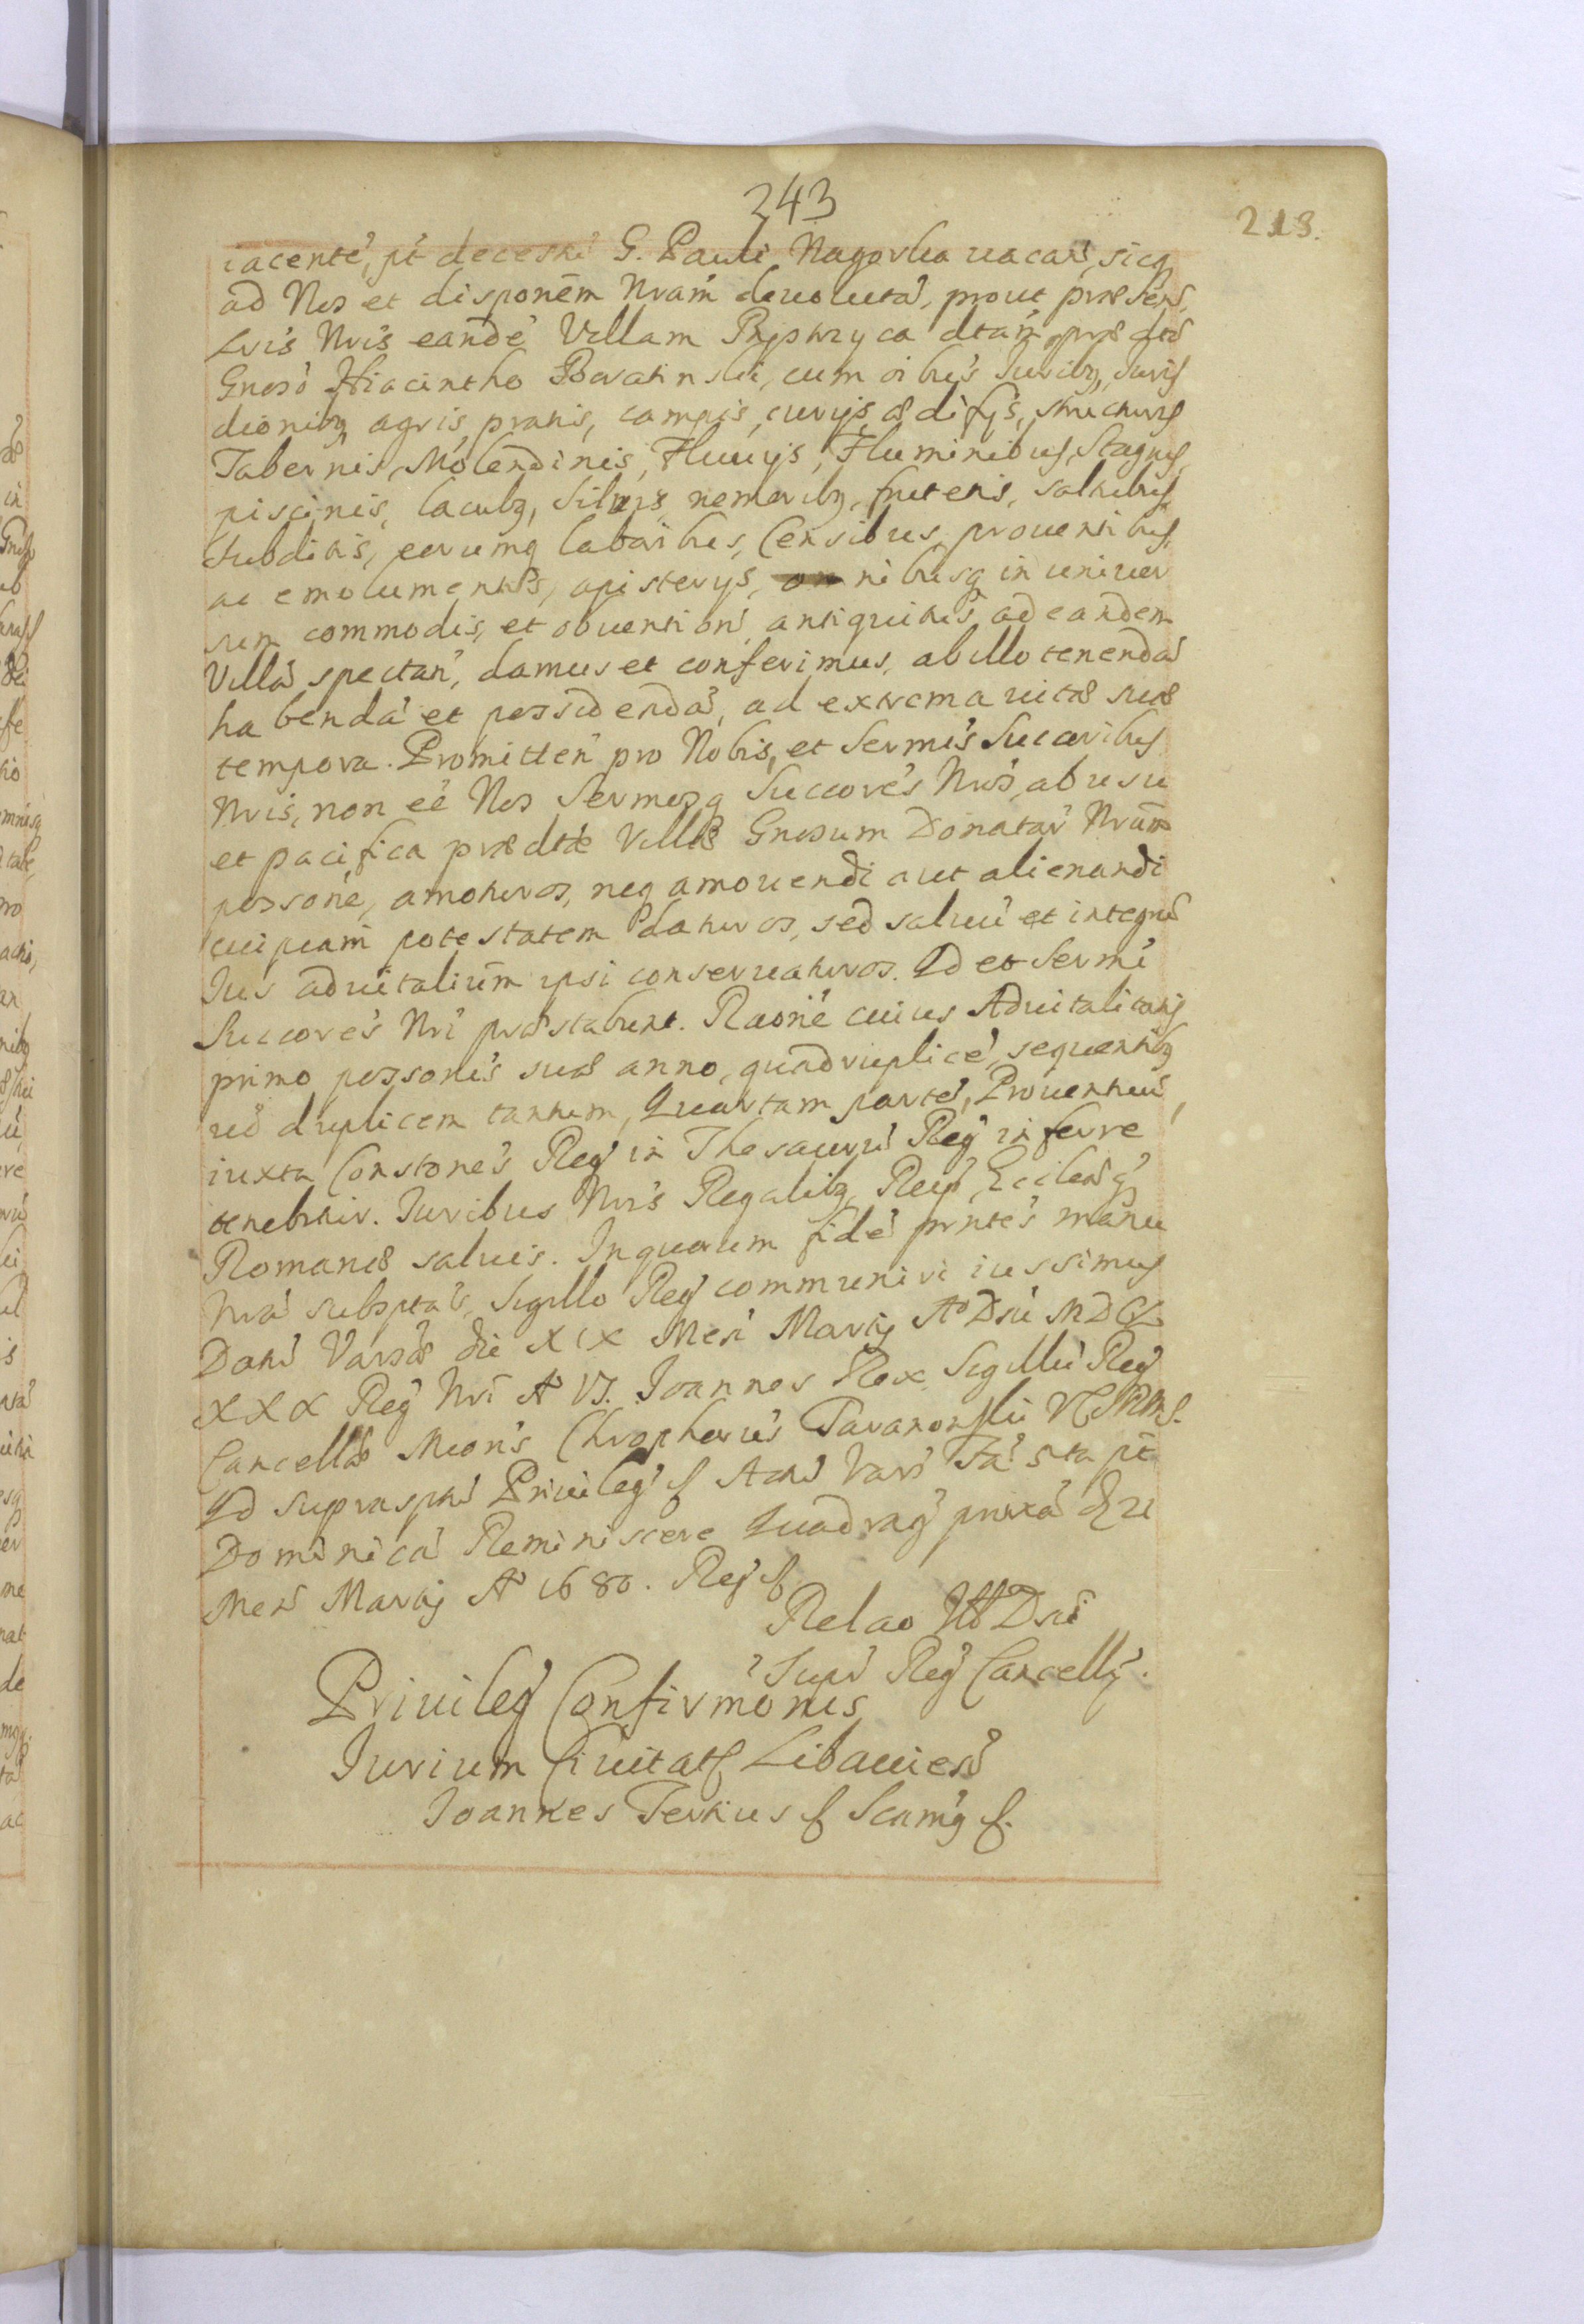 243
213.
iacente, pt decessū G. Pauli Nagorka uacań, sicq
ad Nos et disponēm Nrām deuolutā, prout præsen.
Lris Nris eandē Villam Pystrzyca dtam, prædtō
Gnosō Hiacintho Boratinski, cum oibus Iuribg, Iuris
dionibg agris, pratis, campis, curijs, ædifijs, structuris
Tabernis, Molendinis, Fluuijs, Fluminibus, Stagnis,
piscinis, lacubg, siluis, nemoribg, frutetis, saltibus,
subditis, eorumq laboribus, Censibus, prouentibus,
ac emolumentis, apisterijs, omnibusq in uniuer
sum commodis, et obuention, antiquitus ad eandem
Villā spectań, damus et conferimus, ab illo tenendā
habendā et possidendā, ad extrema uitæ suæ
tempora. Promitteń pro Nobis, et Sermis Succoribus
Nris, non eē Nos Sermosq Succorēs Nros, ab usu
et pacifica prædtæ Villæ Gnosum Donatar Nrum
possone, amoturos, neq amouendi aut alienandi
cuipiam potestatem daturos, sed saluū et integrū
Ius aduitalium ipsi conseruaturos. Qd et Sermi
Succorēs Nri præstabunt. Raōne cuius Aduitalitatis
primo possonis suæ anno, quadruplicē, sequentibg
uero duplicem tantum, Quartam partē, Prouentuū,
iuxta Constones Regⁱ in Thesaurū Regⁱ inferre
tenebitur. Iuribus Nris Regalibg, Reip, Eccleæq
Romanæ saluis. In quorum fidē pntes manu
Nrā subsptas, Sigillo Regⁱ communiri iussimus
Datū Varsæ die XIX Mesi Martij Aº Dni MDC L
XXX Regⁱ Nri Aº VI. Ioannes Rex, Sigillū Regⁱ
Cancellæ Meoris Chrophorus Taranowski
Qd suprasptū Priuilegⁱ Actū Varˢ Fa sta pt
Dominicā Reminiscere Quadragⁱ prixa
Mens Martij Aº 1680. Regⁱ
Relao Dni
Supr Regⁱ Cancellⁱ.
Priuilegⁱ Confirmonis
Iurium Ciuitatis Libauiens
Ioannes Tertius